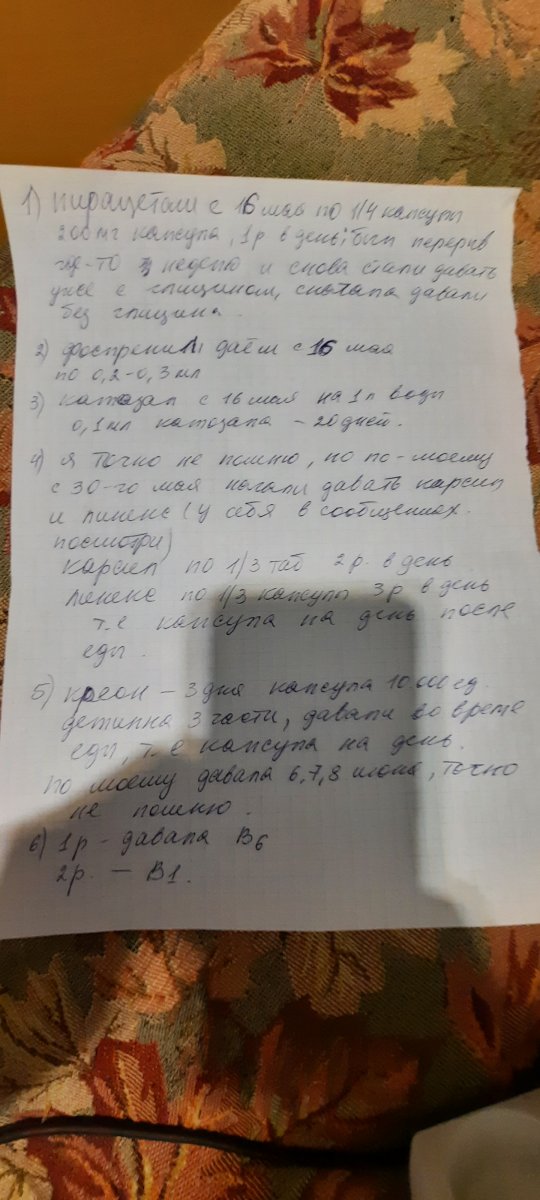 1) Пирацетам с 16 мая по 1/4 капсулы
200 мг капсула, 1р в день, был перерыв
где-то неделю и снова стали давать
уже с глицином, сначала давали
без глицина.
2) фоспренил даём с 16 мая
по 0,2-0,3 мл
3) катозал с 16 мая на 1л воды
0,1мл катозала - 20 дней.
4) я точно не помню, но по-моему
с 30-го мая начали давать карсил
и линекс (у себя в сообщениях
посмотри)
карсил по 1/3 таб 2р. в день
линекс по 1/3 капсулы 3р в день
т.е капсула на день после
еды.
5) креон - 3 дня капсула 10.000 ед.
делила 3 части, давали во время
еды, т.е капсула на день.
По моему давала 6,7,8 июня, точно
не помню.
6) 1р - давала В6
2р. - В1.